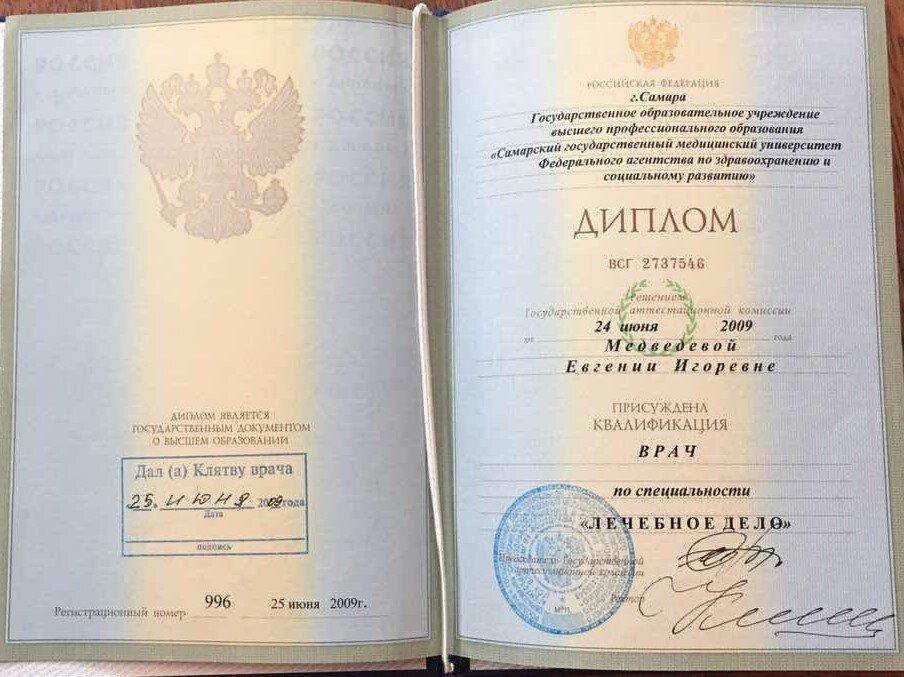 ДИПЛОМ ЯВЛЯЕТСЯ
ГОСУДАРСТВЕННЫМ ДОКУМЕНТОМ
О ВЫСШЕМ ОБРАЗОВАНИИ
Дал (а) Клятву врача
25. июня 2009 года
Дата
подпись
Регистрационный номер 996 25 июня 2009г.
РОССИЙСКАЯ ФЕДЕРАЦИЯ
г.Самара
Государственное образовательное учреждение
высшего профессионального образования
«Самарский государственный медицинский университет
Федерального агентства по здравоохранению и
социальному развитию»
ДИПЛОМ
ВСГ 2737546
Решением
Государственной аттестационной комиссии
от 24 июня 2009 года
Медведевой
Евгении Игоревне
ПРИСУЖДЕНА
КВАЛИФИКАЦИЯ
ВРАЧ
по специальности
«ЛЕЧЕБНОЕ ДЕЛО»
Председатель Государственной
аттестационной комиссии
Ректор
М.П.